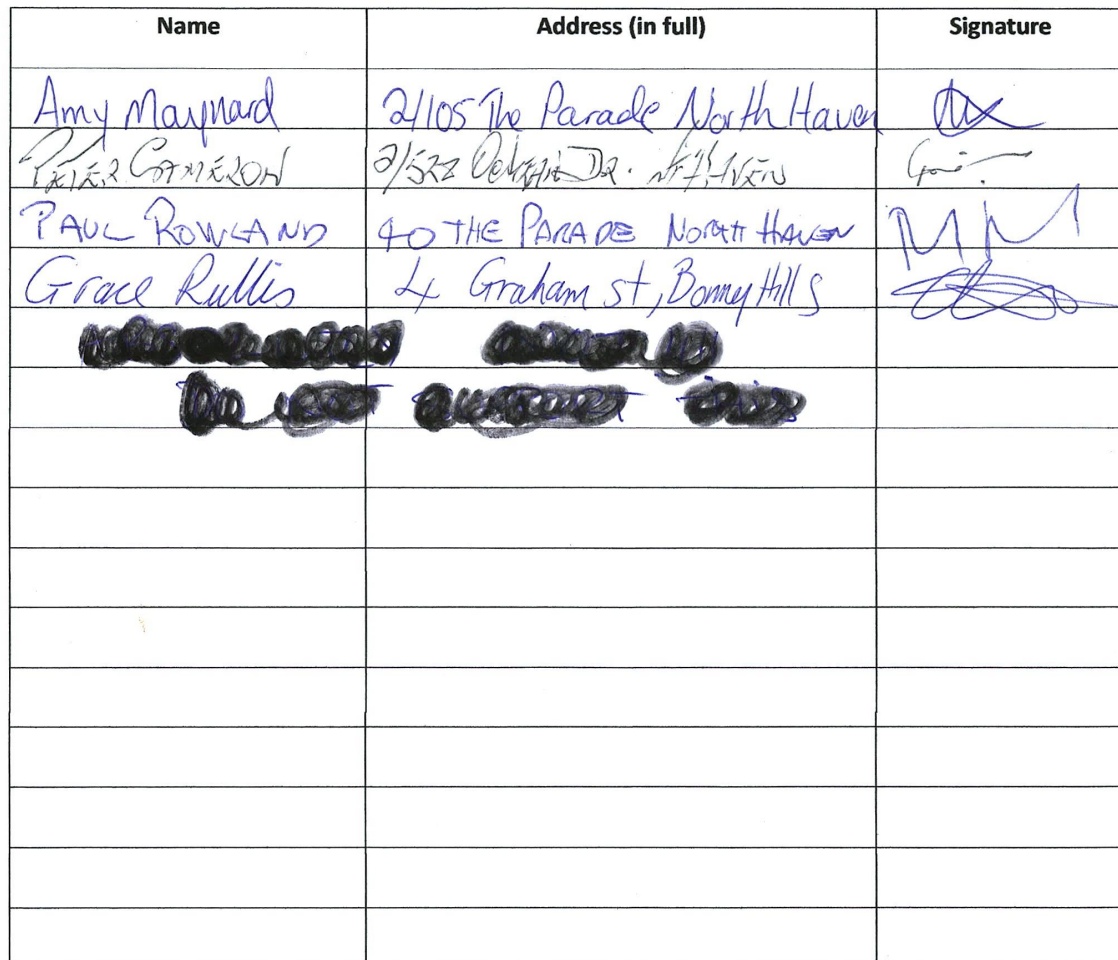 Name Address (in full) Signature
Amy Maynard 2/105 The Parade North Haven
PETER CAMERON 2/522 DR.
PAUL ROWLAND 40 THE PARADE NORTH HAVEN
Grace Rullis 4 Graham st, Bonny Hills